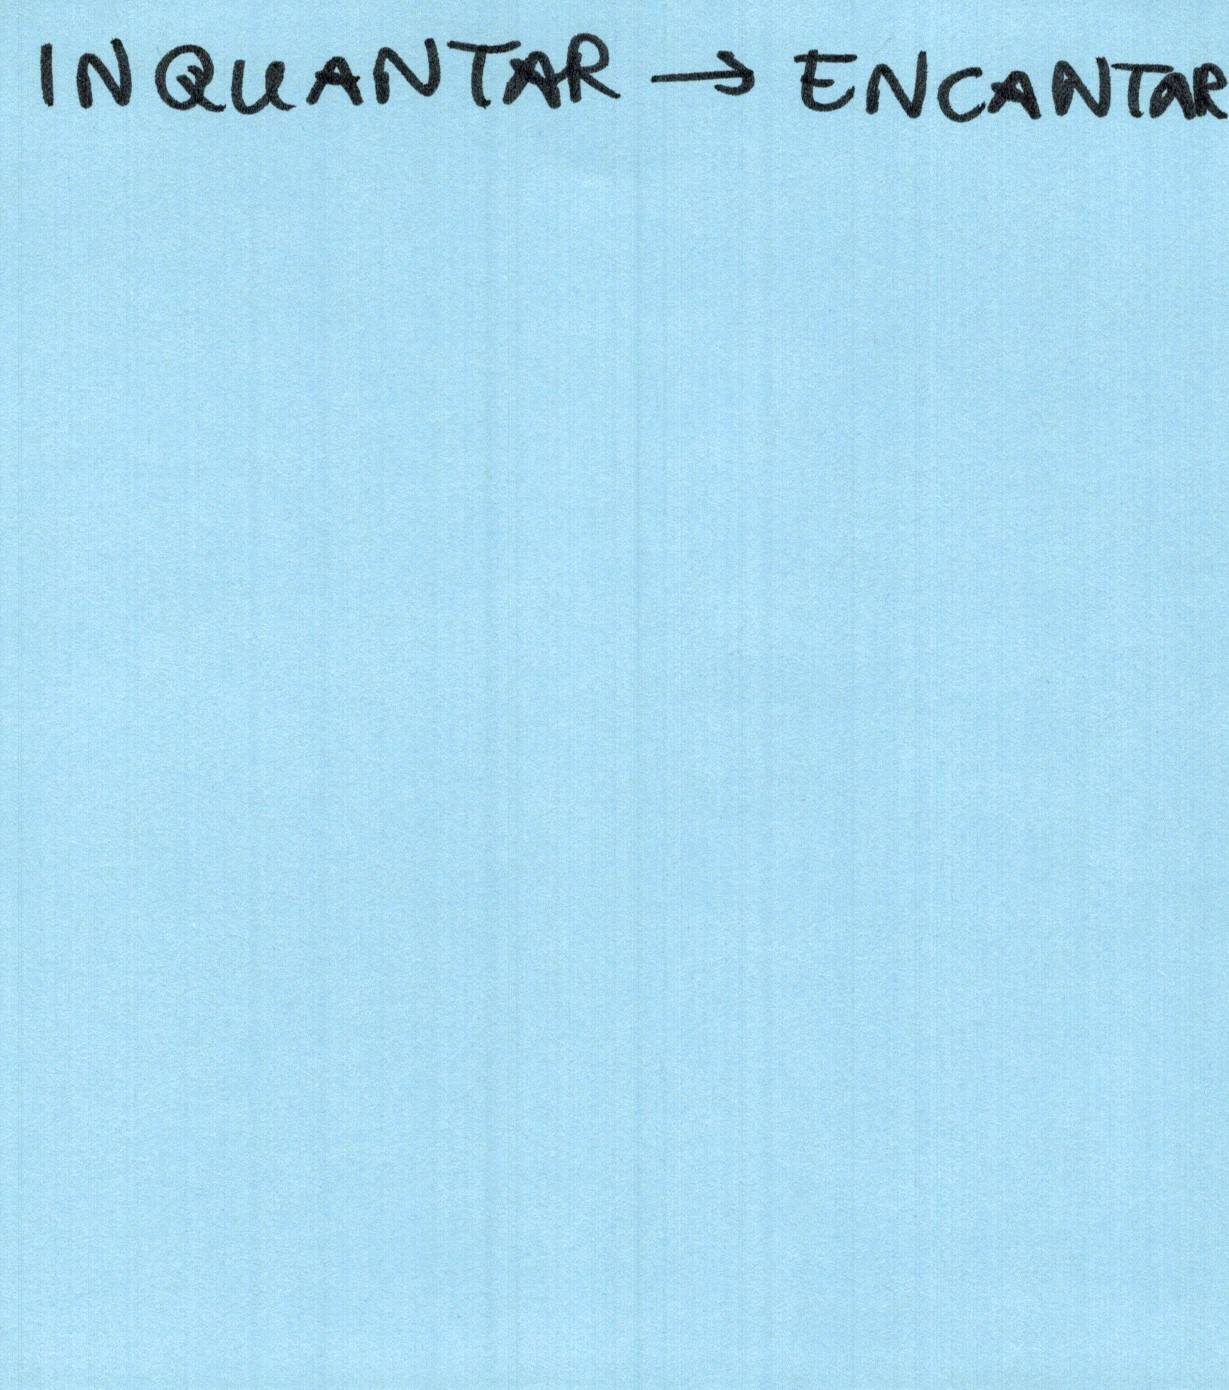 INQUANTAR → ENCANTAR